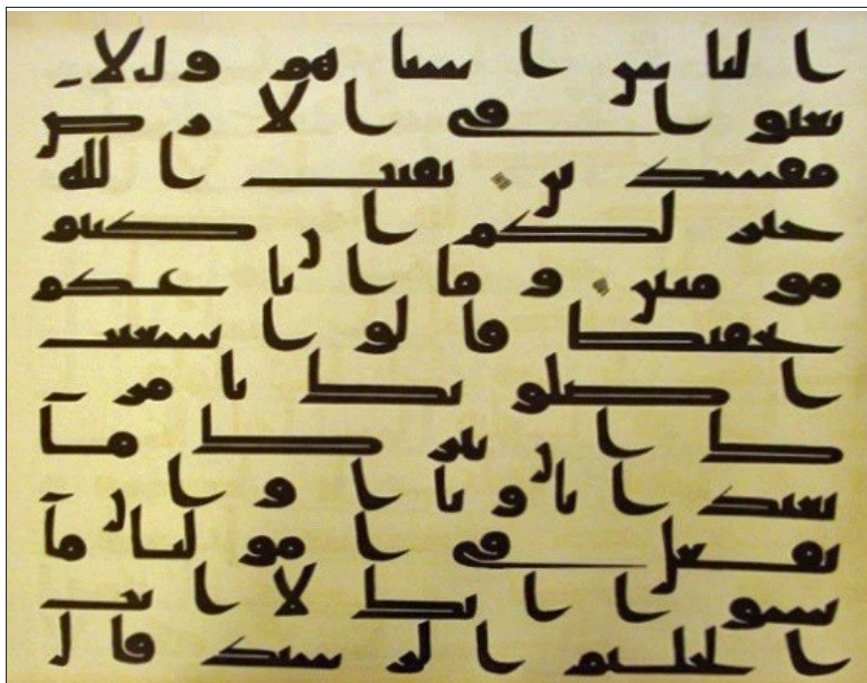 الناس اشياهم ولا
تعثوا في الارض
مفسدين بقيت الله
خير لكم ان كنتم
مومنين وما انا عليكم
بحفيظ قالوا يشعيب
اصلوتك تامر
ك ان نترك ما
يعبد اباونا او ان
نفعل في امولنا ما
نشوا انك لاانت
الحليم الرشيد قال